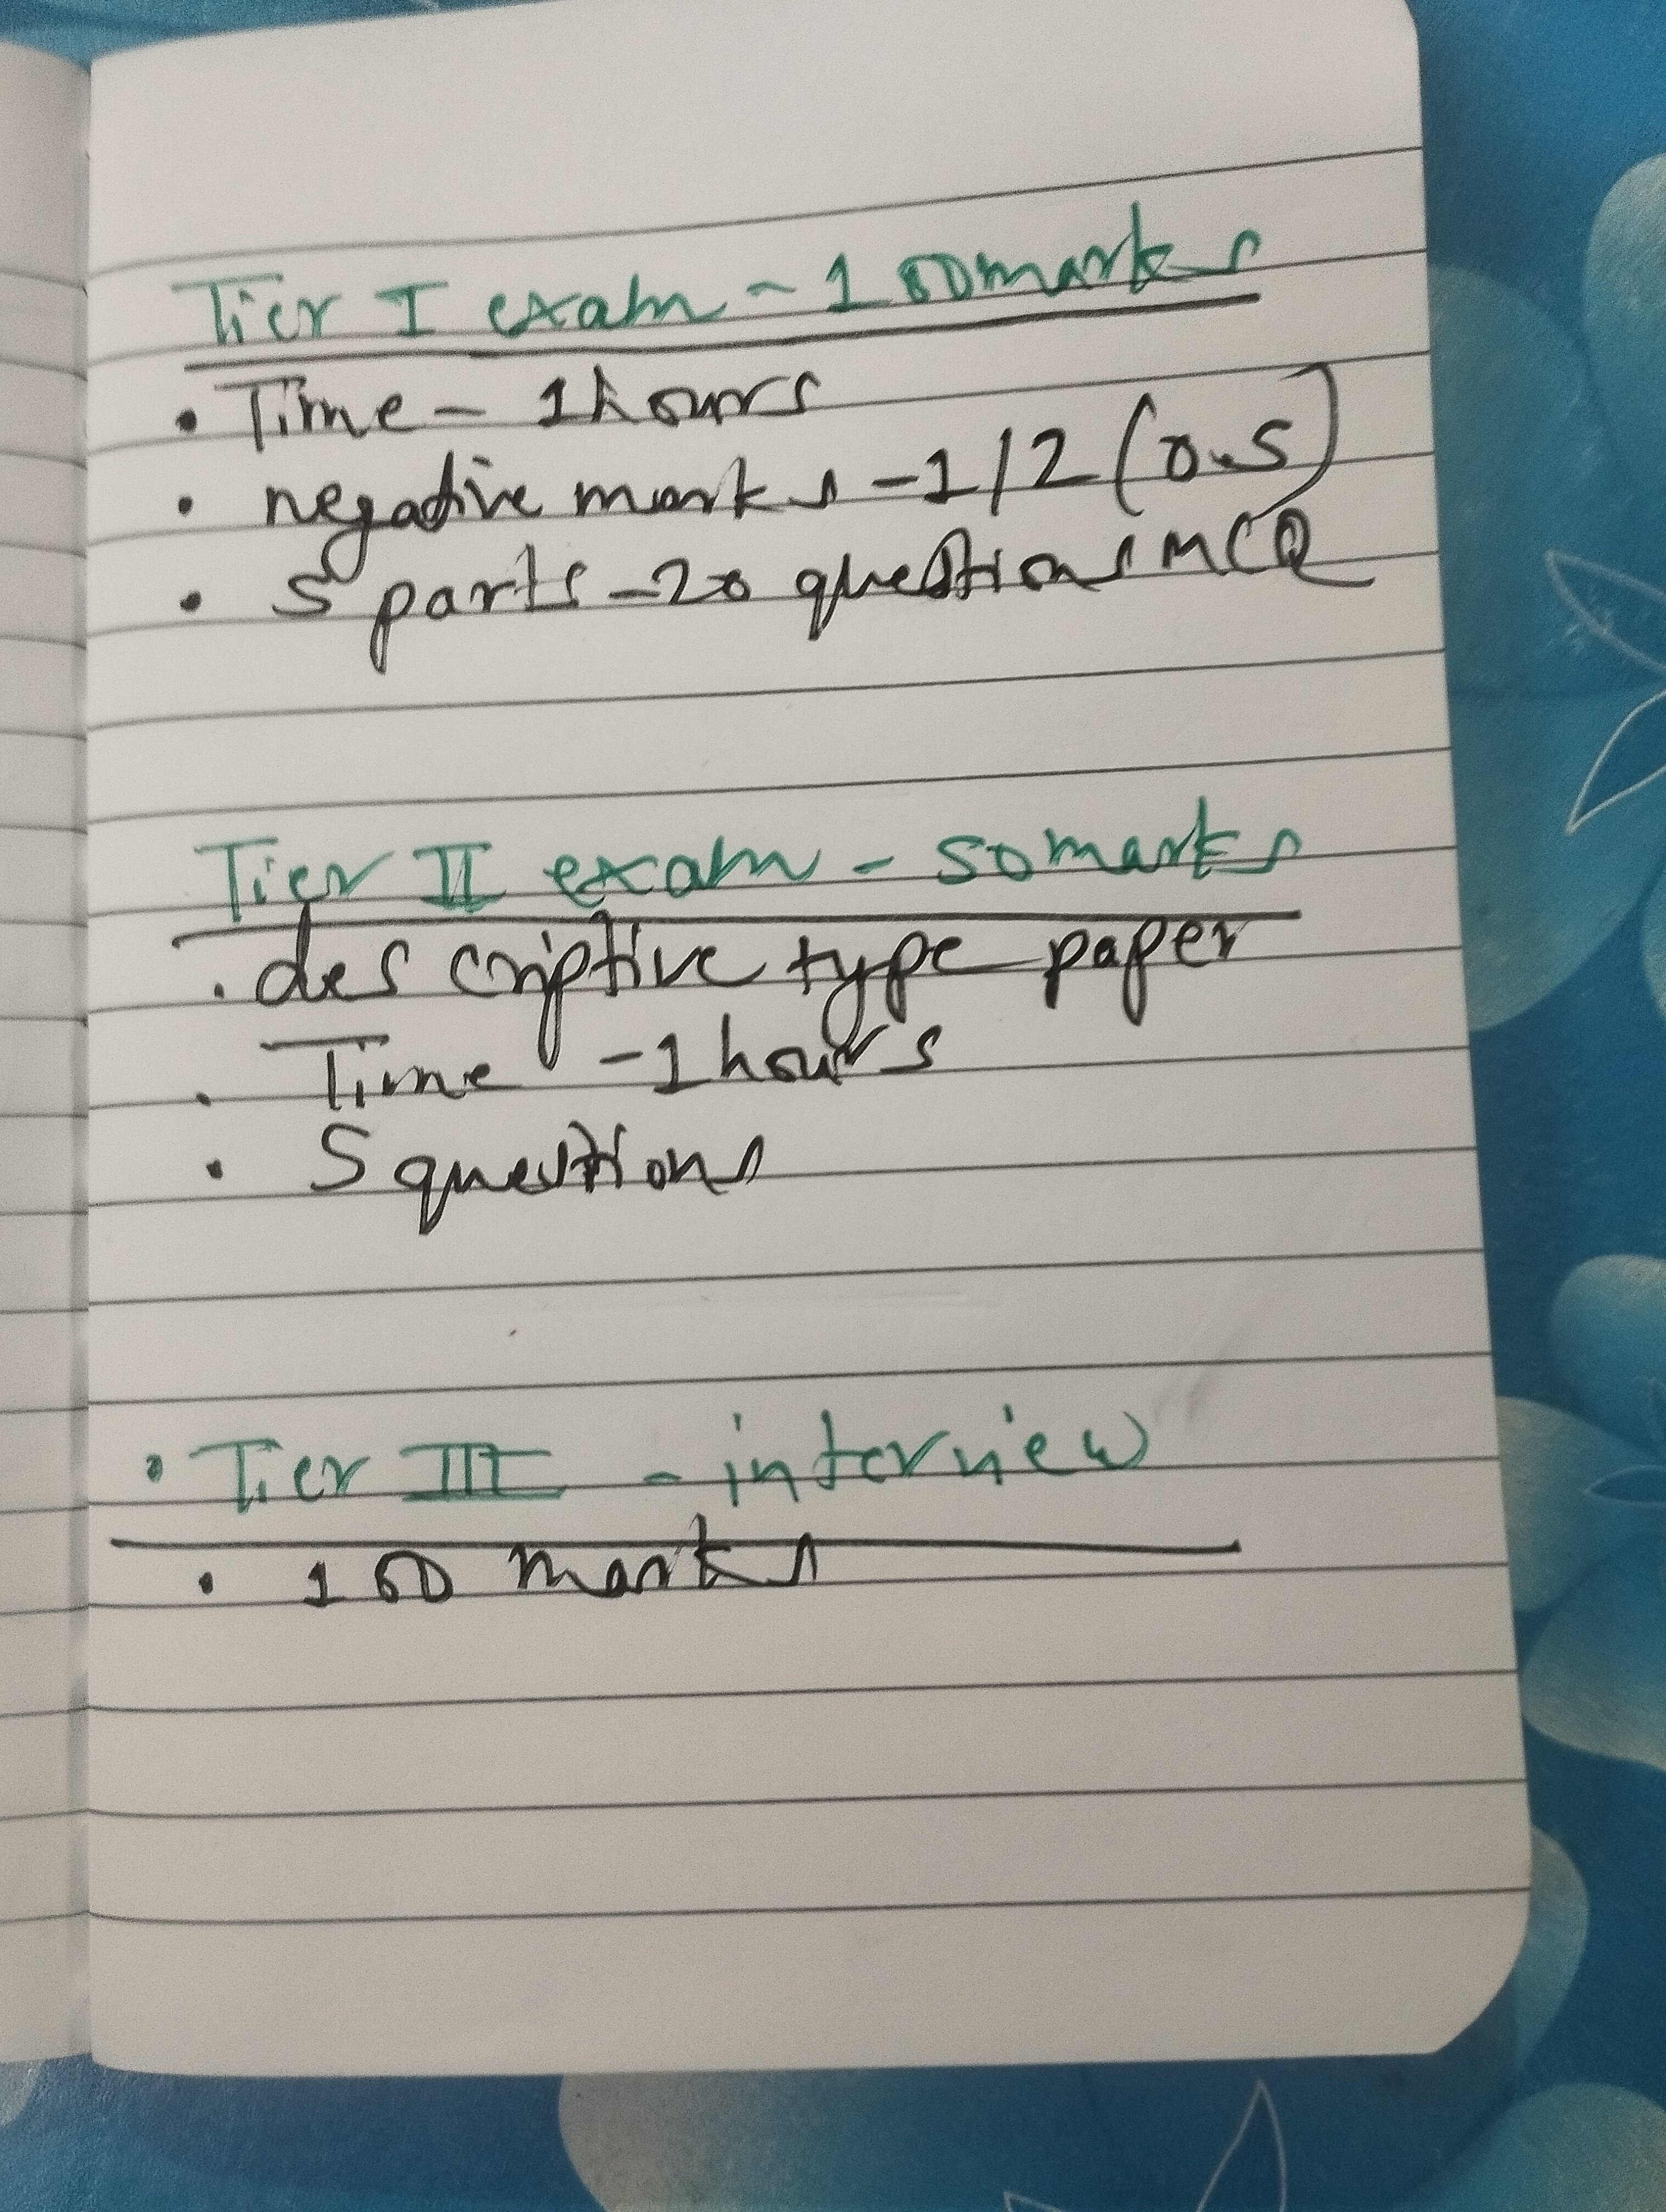 Tier I exam - 100 marks
• Time - 1 hours
• negative marks - 1/2 (0.5)
• 5 parts - 20 questions MCQ
Tier II exam - 50 marks
• descriptive type paper
• Time - 1 hours
• 5 questions
• Tier III - interview
• 100 marks